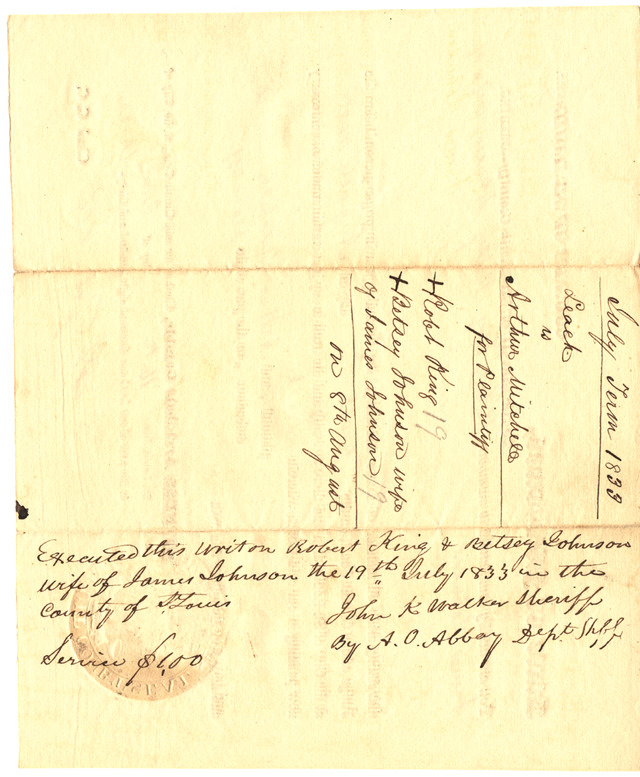 July Term 1833
Leach
vs
Arthur Mitchell
for Plaintiff
+ Robt King 19
+ Betsey Johnson wife
of James Johnson 19
on 8th August
Executed this writ on Robert King & Betsey Johnson
wife of James Johnson the 19th July 1833 in the
County of St Louis
John K Walker Sheriff
By A. O. Abbay Dept. Shff
Service $1,00